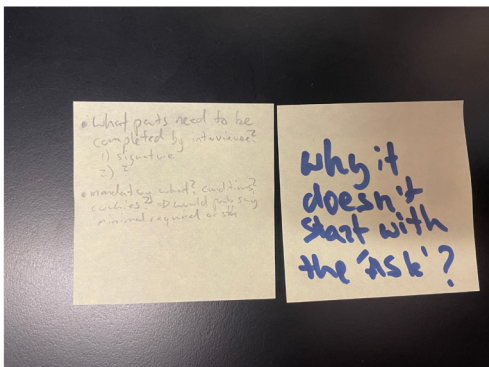 • What parts need to be
completed by interviewee?
1) signature
2) ?
• mandatory what? conditions?
cookies? → would prob say
minimal required or sth
why it
doesn't
start with
the 'ASK'?